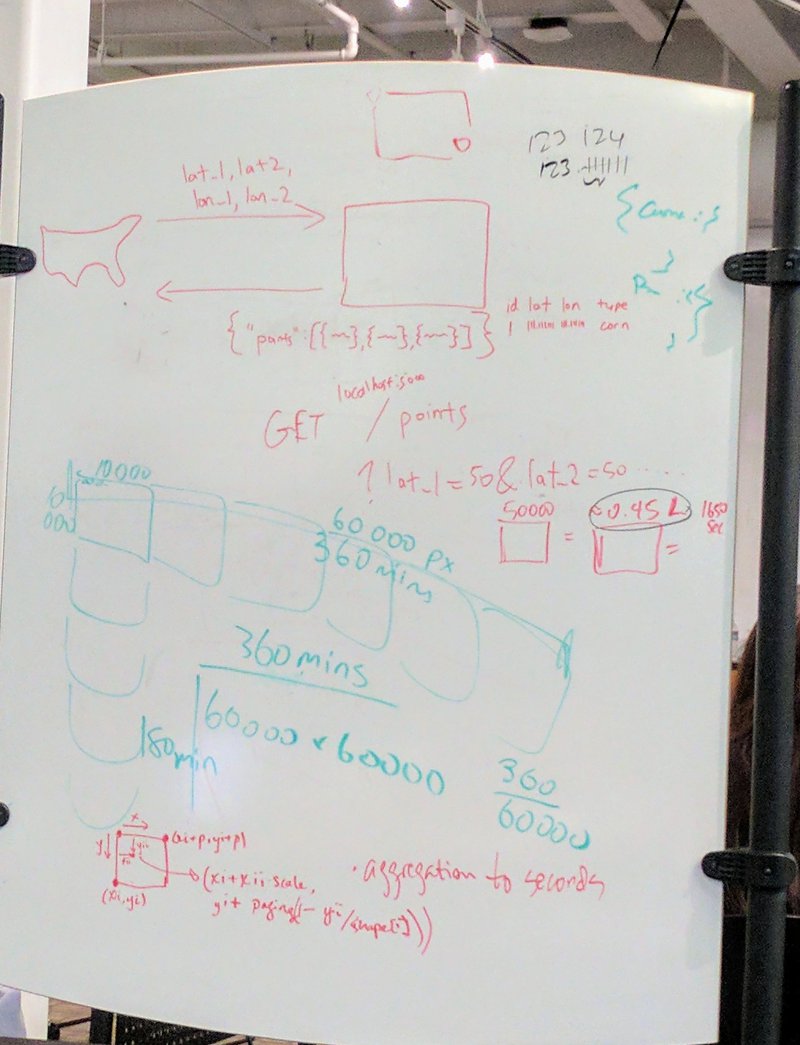 123 124
123
lat_1, lat2,
lon_1, lon_2
{"points":[{~~},{~~},{~~}]}
id lat lon type
1 corn
localhost:5000
GET /points
? lat_1=50 & lat_2=50 .....
10000
10
000
60000 px
360 mins
50000
=
≈0.45 L
=
1650
sec
360 mins
60000 × 60000
180 min
360
60000
x
y
(xi+p, yi+p)
(xi, yi)
(xi + xii·scale,
yi +
· aggregation to seconds